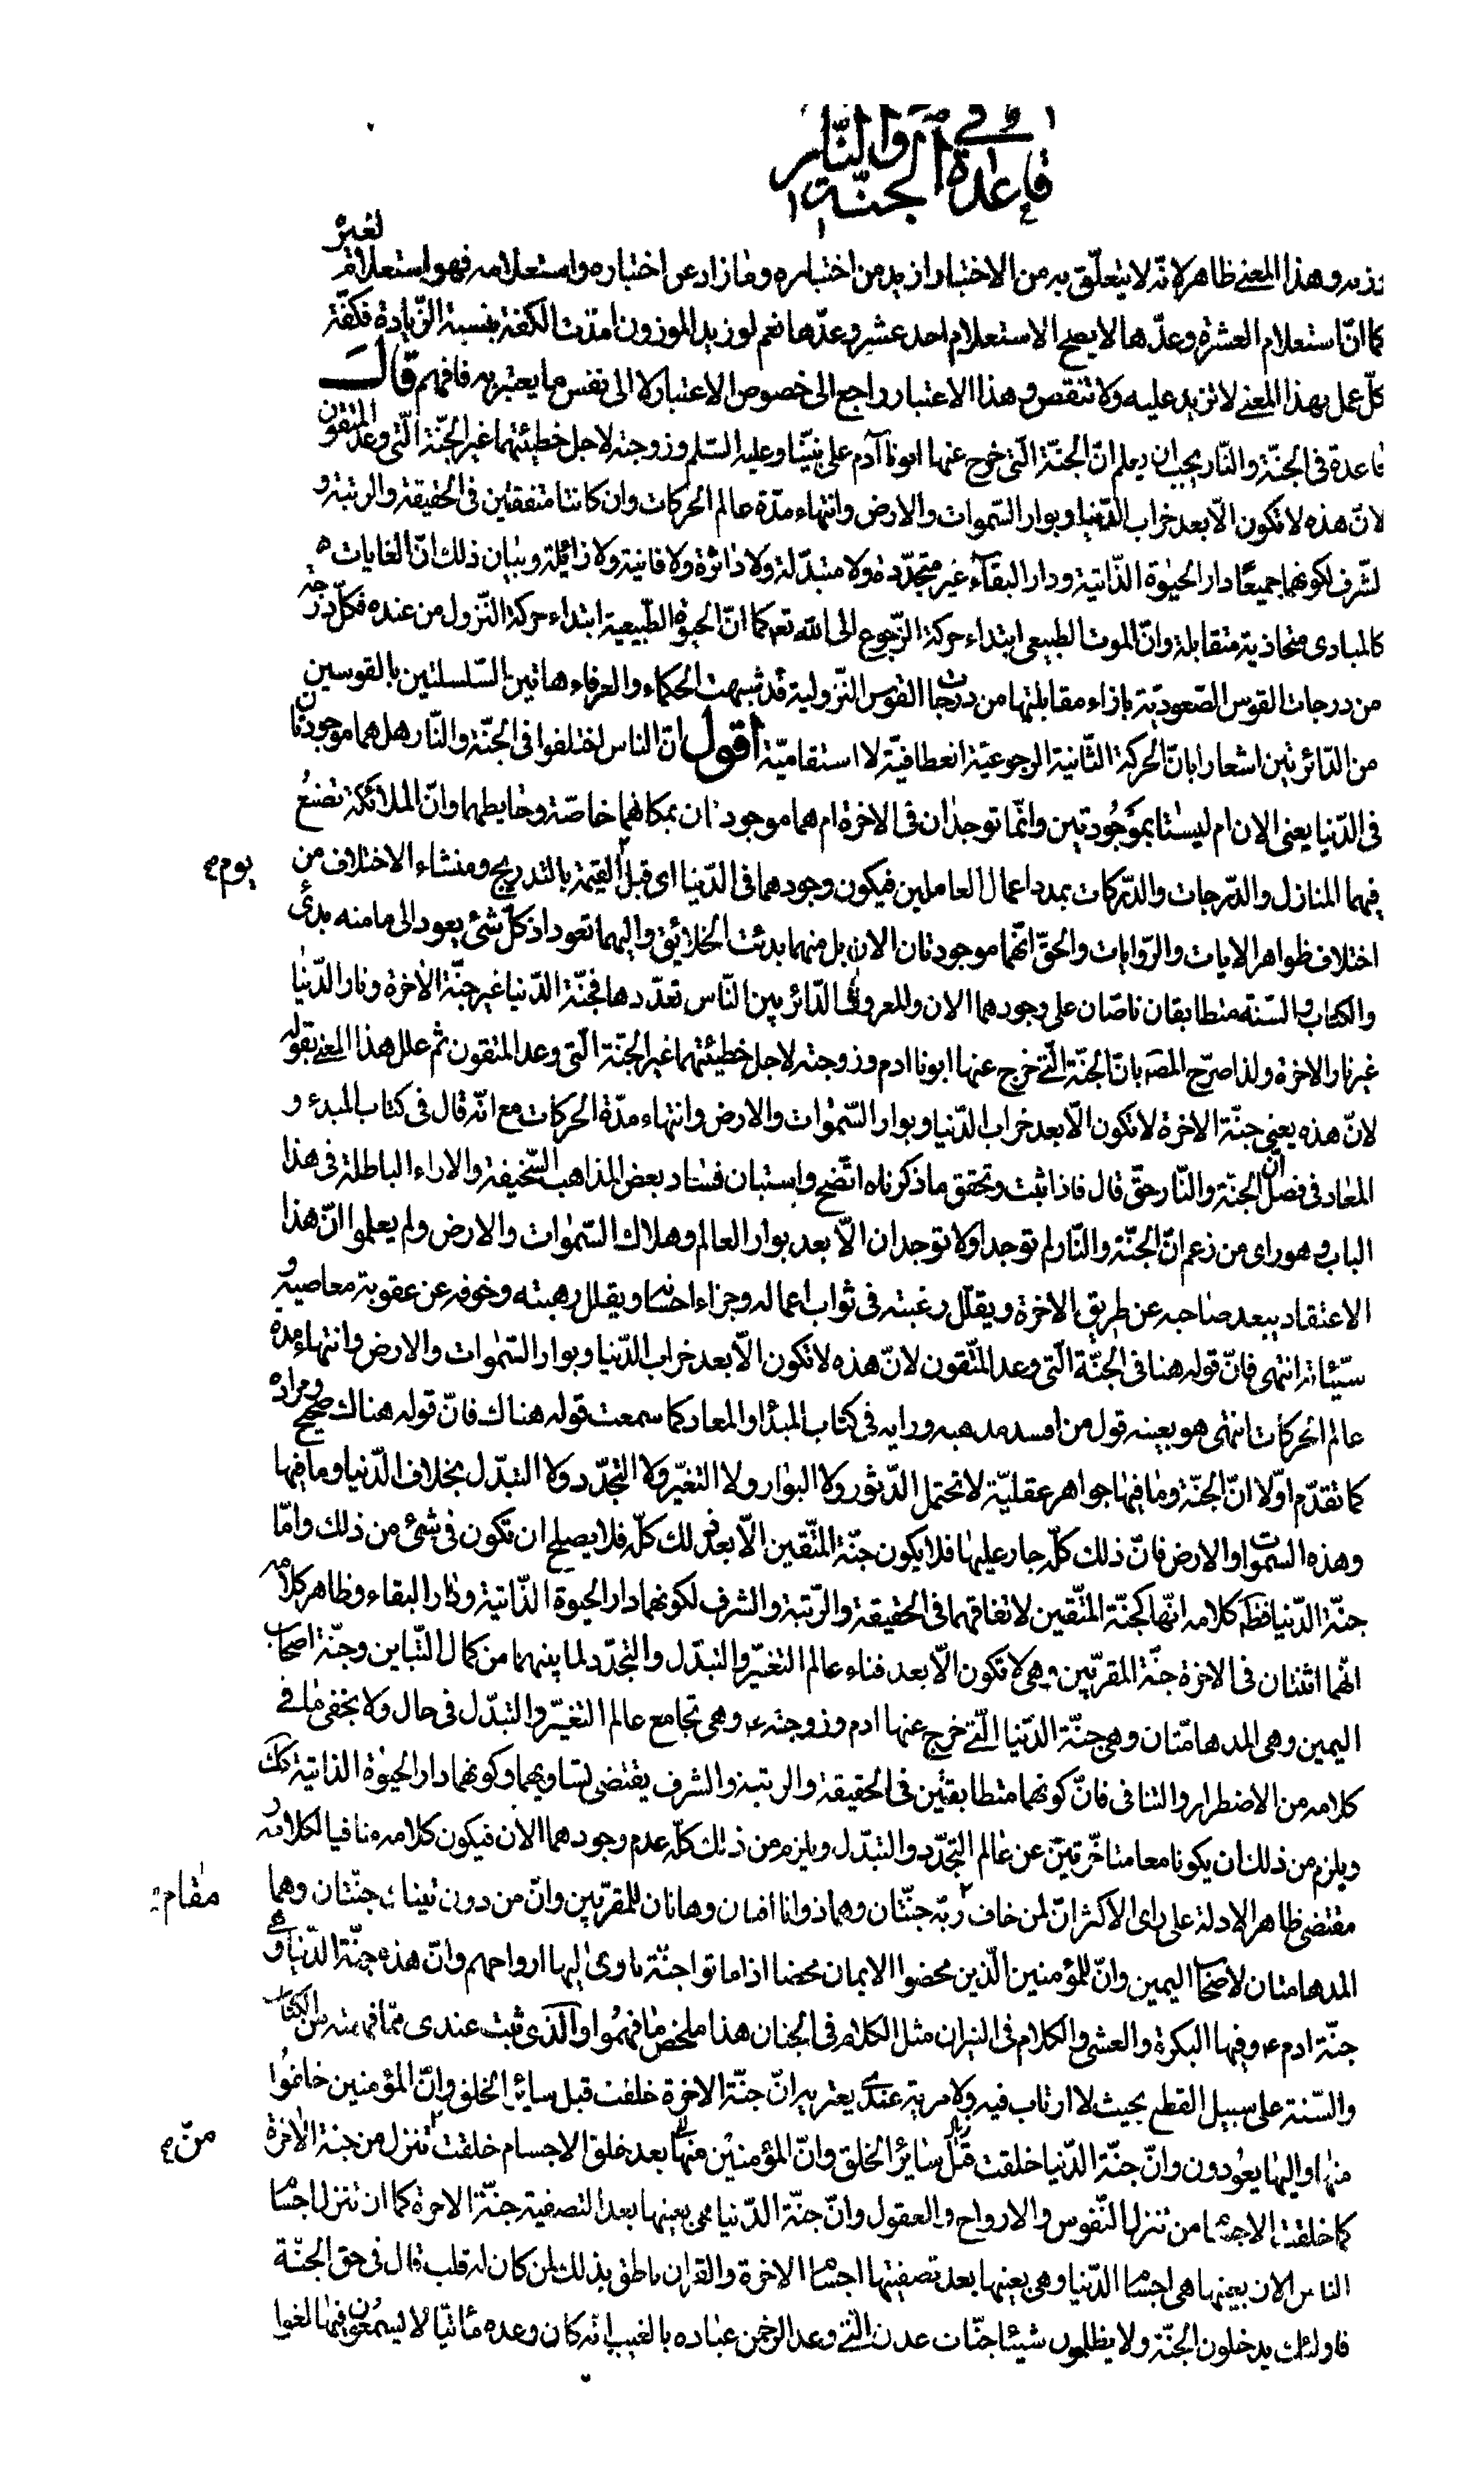 قاعدة في الجنّة والنّار
وزيد وهذا المعنى ظاهر لانّه لا يتعلّق به من الاختبار ازيد من اختباره وما زاد عن اختباره واستعلامه فهو استعلام لغيره
كما انّ استعلام العشرة وعدّها لا يصحّ الا استعلام احد عشر وعدّها نعم لو زيد الموزون امتدّت الكفة بنسبة الزيادة فكفّة
كلّ عمل بهذا المعنى لا تزيد عليه ولا تنقص وهذا الاعتبار راجع الى خصوص الاعتبار لا الى نفس ما يعتبر به فافهم قال
قاعدة فى الجنّة والنّار يجب ان يعلم انّ الجنّة الّتى خرج عنها ابونا آدم على نبيّنا وعليه السّلم وزوجته لاجل خطيئتهما غير الجنّة الّتى وعد المتّقون
لانّ هذه لا تكون الّا بعد خراب الدّنيا وبوار السّموات والارض وانتهاء مدّة عالم الحركات وان كانتا متفقتين فى الحقيقة والرتبة و
الشّرف لكونهما جميعًا دار الحيوة الذّاتية ودار البقاء غير متجدّدة ولا متبدّلة ولا داثرة ولا فانية ولا زائلة وبيان ذلك انّ الغايات
كالمبادى متحاذية متقابلة وانّ الموت الطبيعى ابتداء حركة الرّجوع الى الله تعـ كما انّ الحيوة الطّبيعية ابتداء حركة النّزول من عنده فكلّ درجة
من درجات القوس الصّعوديّة بازاء مقابلتها من درجات القوس النّزولية قد شبهت الحكماء والعرفاء هاتين السّلسلتين بالقوسين
من الدّائرتين اشعارا بانّ الحركة الثّانية الرجوعيّة انعطافيّة لا استقاميّة اقول انّ الناس اختلفوا فى الجنّة والنّار هل هما موجودتان
فى الدّنيا يعنى الان ام ليستا بموجودتين وانّما توجدان فى الاخرة ام هما موجودتان بمكانهما خاصّة وحايطهما وانّ الملائكة تصنع
فيهما المنازل والدّرجات والدّركات بمدد اعمال العاملين فيكون وجودهما فى الدّنيا اى قبل القيمة بالتدريج ومنشاء الاختلاف من
يوم
اختلاف ظواهر الايات والرّوايات والحقّ انّهما موجودتان الان بل منهما بدئت الخلائق واليهما تعود اذ كلّ شئ يعود الى ما منه بدئ
والكتاب والسّنّة متطابقان ناصّان على وجودهما الان والمعروف الدّائر بين النّاس تعدّدها فجنّة الدّنيا غير جنّة الاخرة ونار الدّنيا
غير نار الاخرة ولذا صرّح المصـ بانّ الجنّة الّتى خرج عنها ابونا ادم وزوجته لاجل خطيئتهما غير الجنّة الّتى وعد المتقون ثم علل هذا المعنى بقوله
لانّ هذه يعنى جنّة الاخرة لا تكون الّا بعد خراب الدّنيا وبوار السّموات والارض وانتهاء مدّة الحركات مع انّه قال فى كتاب المبدء و
المعاد فى فصل انّ الجنّة والنّار حقّ قال فاذا ثبت وتحقق ما ذكرناه اتّضح واستبان فساد بعض المذاهب السّخيفة والاراء الباطلة فى هذا
الباب وهو راى من زعم انّ الجنّة والنّار لم توجدا ولا توجدان الّا بعد بوار العالم وهلاك السّموات والارض ولم يعلموا انّ هذا
الاعتقاد يبعد صاحبه عن طريق الاخرة ويقلّل رغبته فى ثواب اعماله وجزاء احسانه ويقلل رهبته وخوفه عن عقوبة معاصيه و
سيّئاته انتهى فانّ قوله هنا فى الجنّة الّتى وعد المتّقون لانّ هذه لا تكون الّا بعد خراب الدّنيا وبوار السّموات والارض وانتهاء مدة
عالم الحركات انتهى هو بعينه قول من افسد مذهبه ورايه فى كتاب المبدأ والمعاد كما سمعت قوله هناك فانّ قوله هناك صحيح ومراده
كما تقدّم اوّلا انّ الجنّة وما فيها جواهر عقليّة لا تحتمل الدّثور ولا البوار ولا التغيّر ولا التجدّد ولا التبدّل بخلاف الدّنيا وما فيها
وهذه السموات والارض فانّ ذلك كلّه جار عليها فلا يكون جنّة المتّقين الّا بعد ذلك كلّه فلا يصلح ان تكون فى شئ من ذلك وامّا
جنّة الدّنيا فظـ كلامه انّها كجنّة المتّقين لاتفاقهما فى الحقيقة والرّتبة والشرف لكونهما دار الحيوة الذّاتية ودار البقاء وظاهر كلامه
انّهما اثنتان فى الاخرة جنّة المقربّين وهى لا تكون الّا بعد فناء عالم التغيّر والتبدّل والتجدّد لما بينهما من كمال التّباين وجنّة اصحاب
اليمين وهى المدهامّتان وهى جنّة الدّنيا الّتى خرج عنها ادم وزوجته ع وهى تجامع عالم التغيّر والتبدّل فى حال ولا يخفى ما فى
كلامه من الاضطرار والتنافى فانّ كونهما متطابقتين فى الحقيقة والرتبة والشرف يقتضى تساويهما وكونهما دار الحيوة الذاتية كك
ويلزم من ذلك ان يكونا معا متاخّرتين عن عالم التجدّد والتبدّل ويلزم من ذلك كلّه عدم وجودهما الان فيكون كلامه منافيا لكلامه و
مقتضى ظاهر الادلة على راى الاكثر انّ لمن خاف ربّه جنّتان وهما ذواتا افنان وهاتان للمقربّين وانّ من دون جنّتان وهما
مقام
المدهامتان لاصحاب اليمين وانّ للمؤمنين الّذين محضوا الايمان محضا اذا ماتوا جنّة تاوى اليها ارواحهم وانّ هذه جنّة الدّنيا وهى
جنّة ادم ع وفيها البكرة والعشى والكلام فى النيران مثل الكلام فى الجنان هذا ملخص ما فهموا والّذى ثبت عندى ممّا فهمته من الكتاب
والسّنة على سبيل القطع بحيث لا ارتاب فيه ولا مرية عندى يعتريه انّ جنّة الاخرة خلقت قبل سائر الخلق وانّ المؤمنين خلقوا
منها واليها يعودون وانّ جنّة الدّنيا خلقت قبل سائر الخلق وانّ المؤمنين منها بعد خلق الاجسام خلقت تنزل من جنة الاخرة
منّ
كما خلقت الاجسام من تنزل النّفوس والارواح والعقول وانّ جنّة الدّنيا هى بعينها بعد التصفية جنّة الاخرة كما ان تنزل اجسام
الناس الان بعينها هى اجسام الدّنيا وهى بعينها بعد تصفيتها اجسام الاخرة والقران ناطق بذلك لمن كان له قلب قال فى حق الجنّة
فاولئك يدخلون الجنّة ولا يظلمون شيئا جنّات عدن الّتى وعد الرحمن عباده بالغيب انّه كان وعده مأتيّا لا يسمعون فيها لغوا